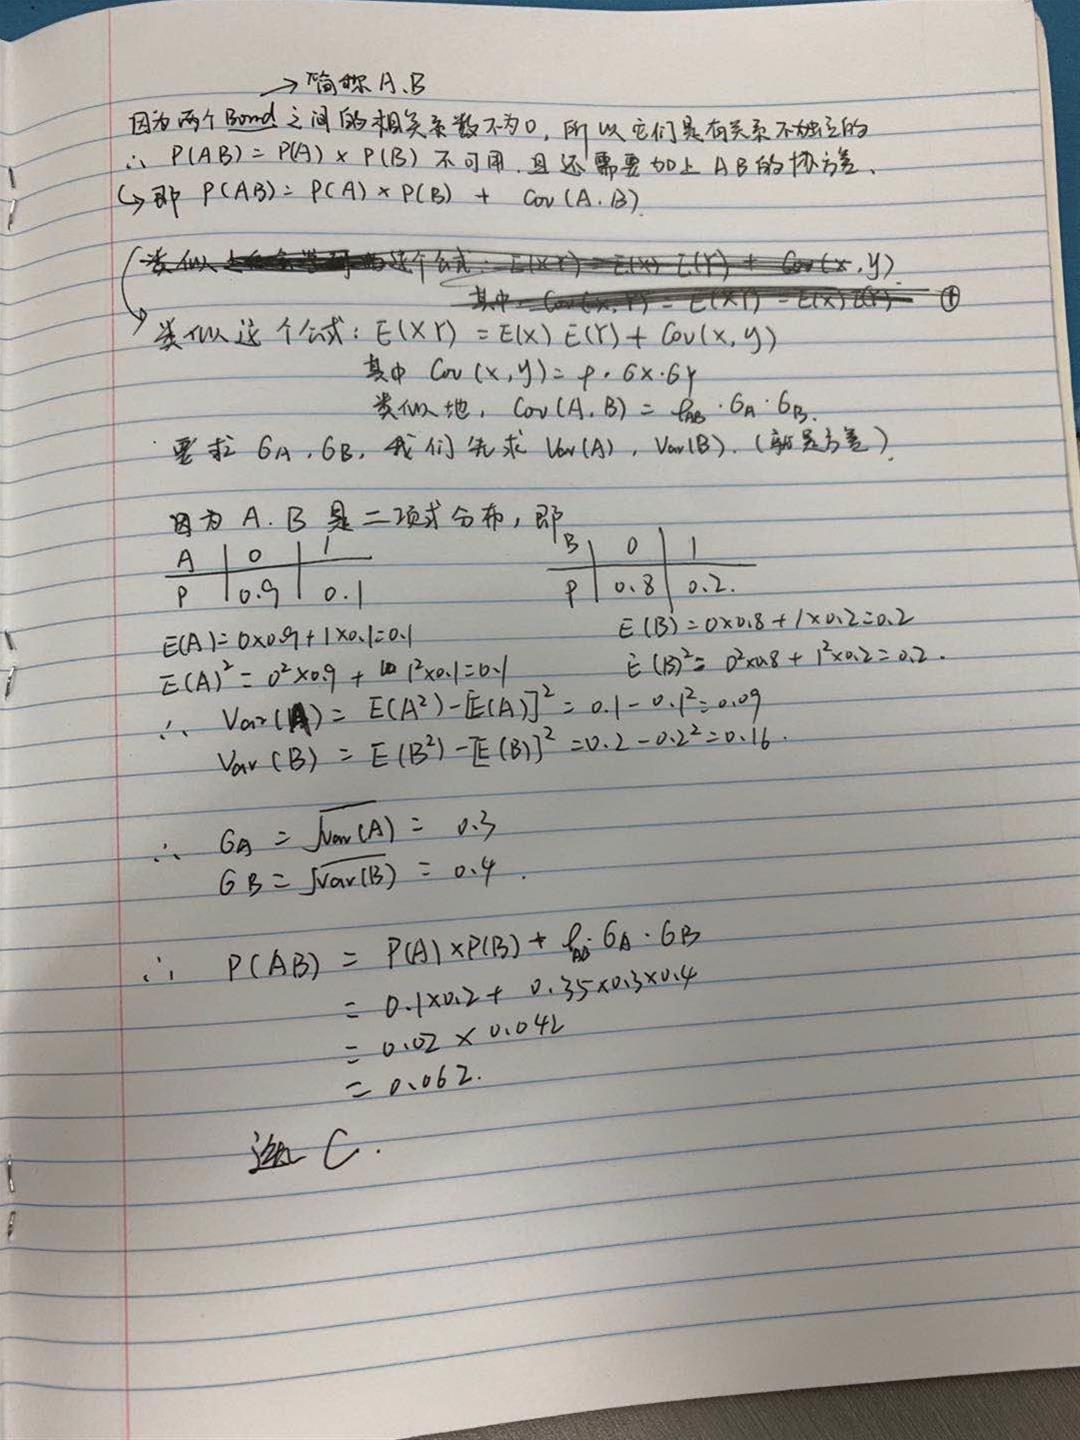 →简称A.B
因为两个Bond之间的相关系数不为0,所以它们是有关系不独立的
∴ P(AB)=P(A)×P(B) 不可用.且还需要加上AB的协方差、
↳即 P(AB)=P(A)×P(B) + Cov(A.B)
类似 这个公式: E(XY)=E(X) E(Y) + Cov(x,y)
其中 Cov(X,Y) = E(XY) - E(X)E(Y) ①
类似这个公式: E(XY) = E(X) E(Y) + Cov(x,y)
其中 Cov(x,y)= ρ·6x·6y
类似地, Cov(A.B) = ρAB·6A·6B.
要求 6A,6B,我们先求 Var(A), Var(B).(就是方差)
因为 A.B 是二项式分布,即
A 0 1 B 0 1
P 0.9 0.1 P 0.8 0.2.
E(A)=0×0.9+1×0.1=0.1 E(B)=0×0.8+1×0.2=0.2
E(A)²=0²×0.9+ 1²×0.1=0.1 E(B)²=0²×0.8+1²×0.2=0.2.
∴ Var(A) = E(A²)-[E(A)]² = 0.1-0.1²=0.09
Var(B) = E(B²)-[E(B)]² =0.2-0.2²=0.16.
∴ 6A = √var(A) = 0.3
6B = √var(B) = 0.4.
∴ P(AB) = P(A)×P(B)+ρAB·6A·6B
= 0.1×0.2+ 0.35×0.3×0.4
= 0.02 × 0.042
= 0.062.
选 C.